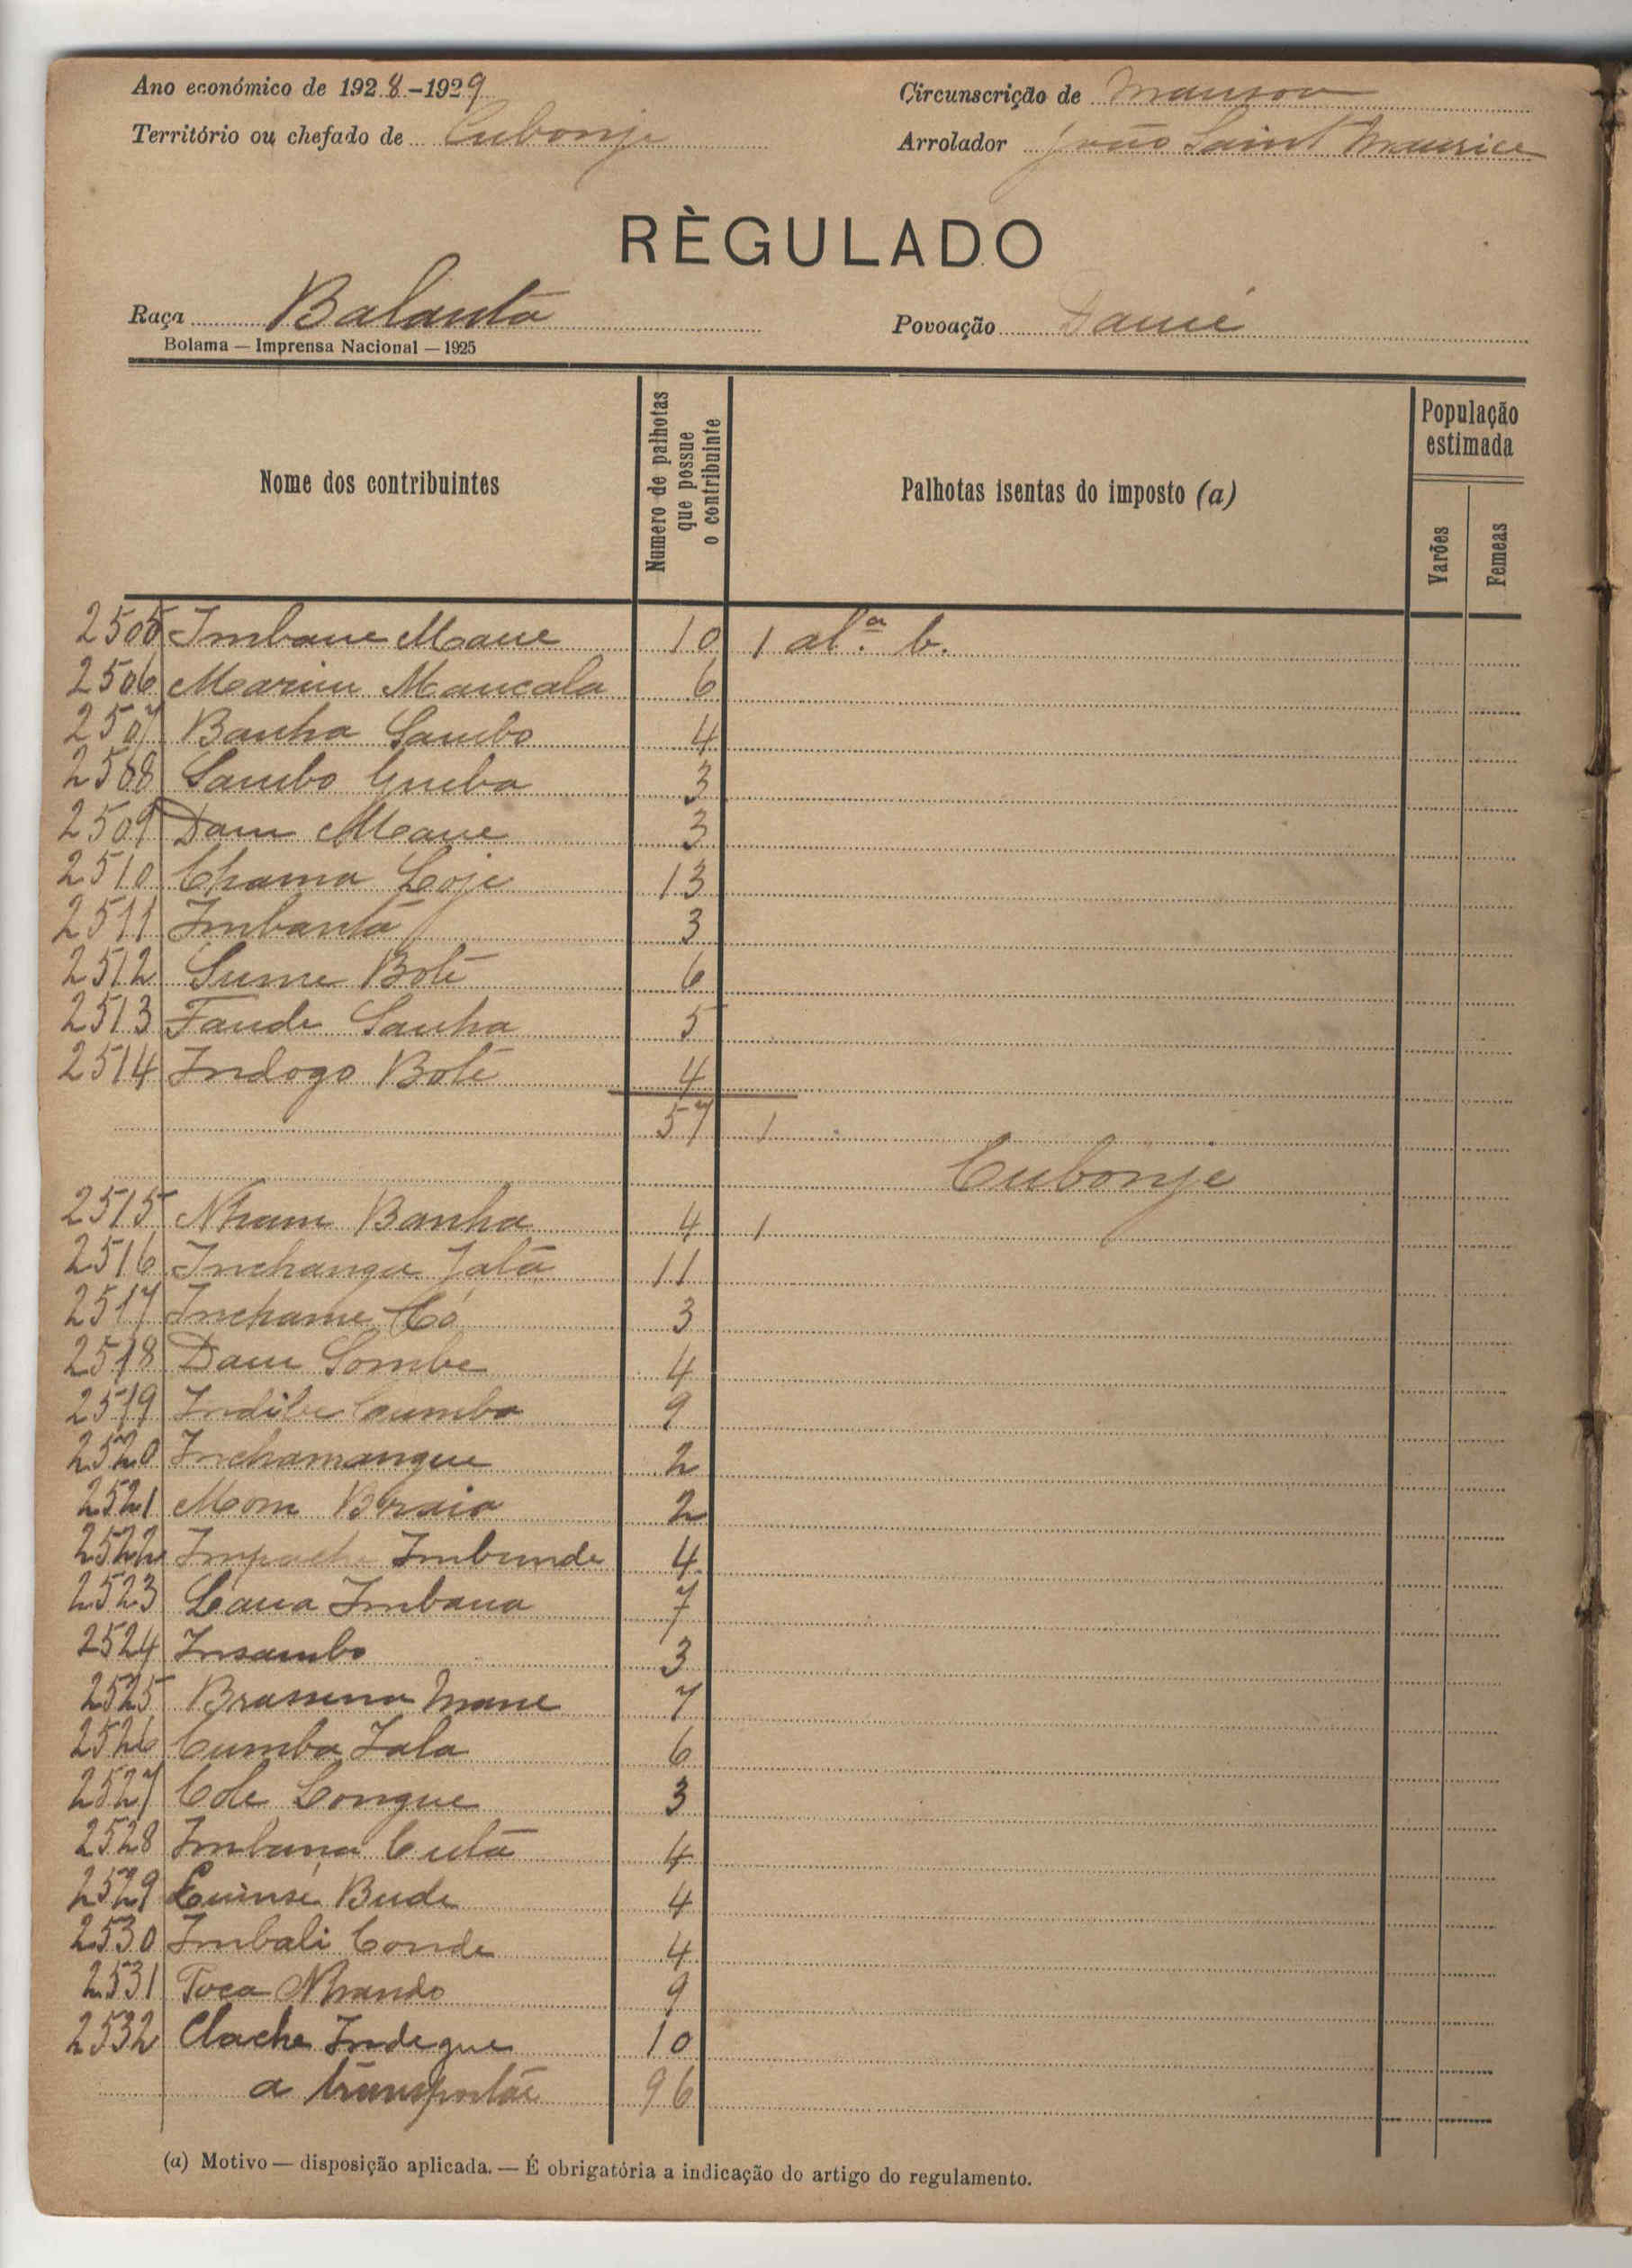 Ano económico de 1928-1929
Circunscrição de Mansoa
Território ou chefado de Cubonje
Arrolador João Saint Maurice
RÈGULADO
Raça Balanta
Povoação
Bolama — Imprensa Nacional — 1925
Nome dos contribuintes
Numero de palhotas que possue o contribuinte
Palhotas isentas do imposto (a)
População estimada
Varões
Femeas
2505 Imbane Mane 10 1 al.ª b.
2506 Marim Mancala 6
2507 Banha Sambo 4
2508 Sambo Gueba 3
2509 Dam Mane 3
2510 Chama Loje 13
2511 Imbantã 3
2512 Sume Botè 6
2513 Fande Sanha 5
2514 Indogo Botè 4
57 1
Cubonje
2515 Nham Banha 4 1
2516 Inchangu Jalã 11
2517 Inchame Có 3
2518 Dam Sombe 4
2519 Indibe Cumba 9
2520 Inchamangue 2
2521 Mom Braia 2
2522 Impache Imbunde 4
2523 Lana Imbana 7
2524 Insambo 3
2525 Brassuna Mane 7
2526 Cumba Jala 6
2527 Cole Longue 3
2528 Imbana Cutã 4
2529 Bude 4
2530 Imbali Conde 4
2531 Toca Nhando 9
2532 Clache Indegue 10
a transportar 96
(a) Motivo — disposição aplicada. — É obrigatória a indicação do artigo do regulamento.